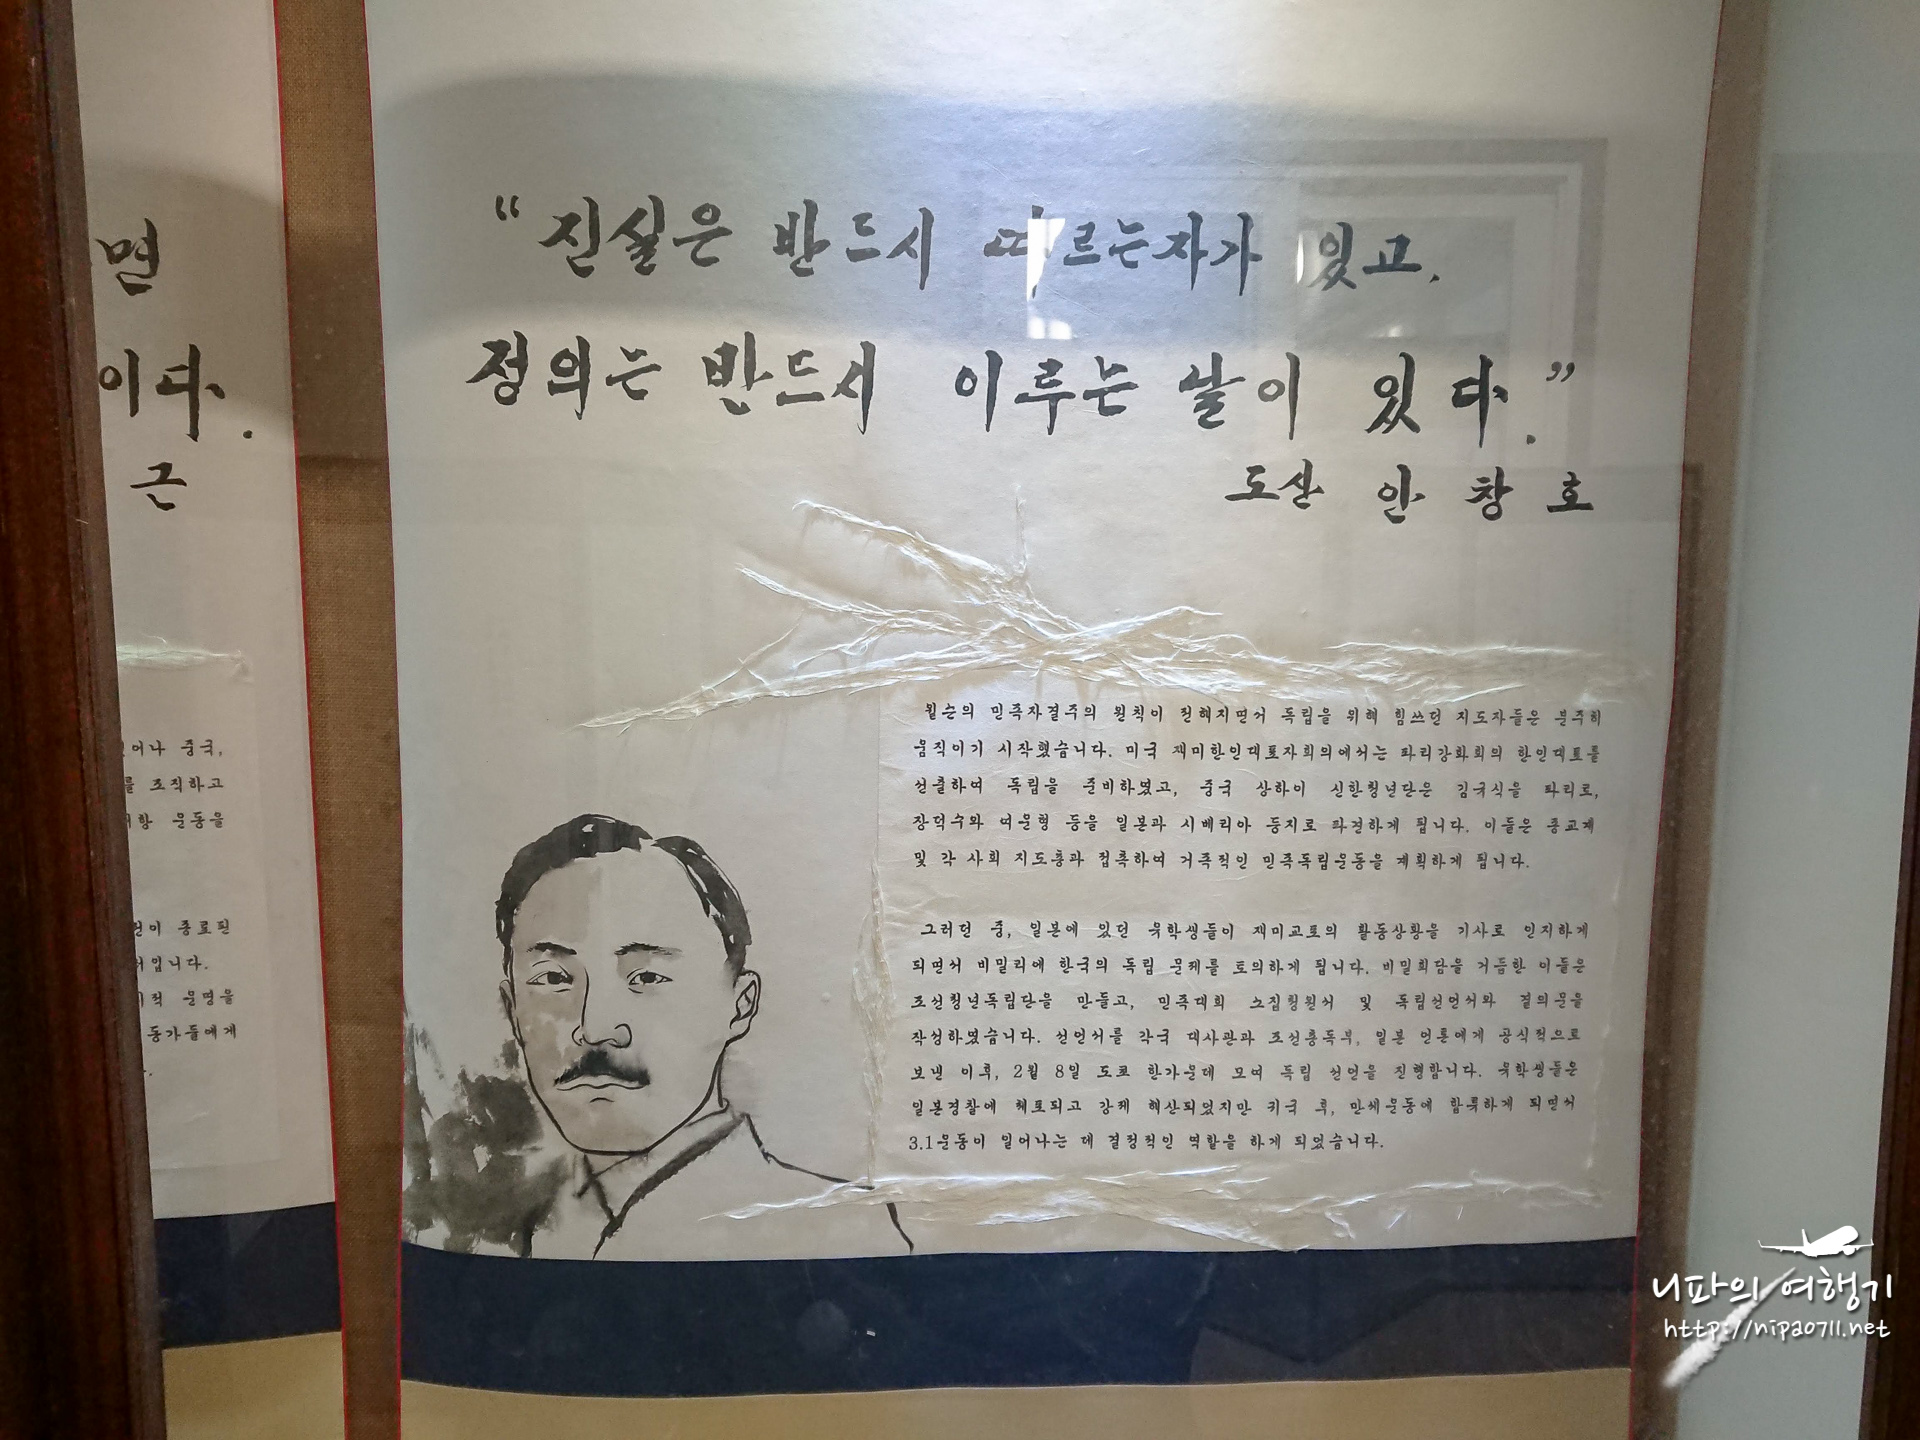 면
이다.
근
"진실은 반드시 따르는자가 있고,
정의는 반드시 이루는 날이 있다."
도산 안 창 호
윌슨의 민족자결주의 원칙이 전해지면서 독립을 위해 힘쓰던 지도자들은 분주히
움직이기 시작했습니다. 미국 재미한인대표자회의에서는 파리강화회의 한인대표를
선출하여 독립을 준비하였고, 중국 상하이 신한청년단은 김규식을 파리로,
장덕수와 여운형 등을 일본과 시베리아 등지로 파견하게 됩니다. 이들은 종교계
및 각 사회 지도층과 접촉하여 거족적인 민족독립운동을 계획하게 됩니다.
그러던 중, 일본에 있던 유학생들이 재미교포의 활동상황을 기사로 인지하게
되면서 비밀리에 한국의 독립 문제를 토의하게 됩니다. 비밀회담을 거듭한 이들은
조선청년독립단을 만들고, 민족대회 소집청원서 및 독립선언서와 결의문을
작성하였습니다. 선언서를 각국 대사관과 조선총독부, 일본 언론에게 공식적으로
보낸 이후, 2월 8일 도쿄 한가운데 모여 독립 선언을 진행합니다. 유학생들은
일본경찰에 체포되고 강제 해산되었지만 귀국 후, 만세운동에 합류하게 되면서
3.1운동이 일어나는 데 결정적인 역할을 하게 되었습니다.
중국,
조직하고
운동을
종료된
입니다.
운명을
동가들에게
니파의 여행기
http://nipa0711.net